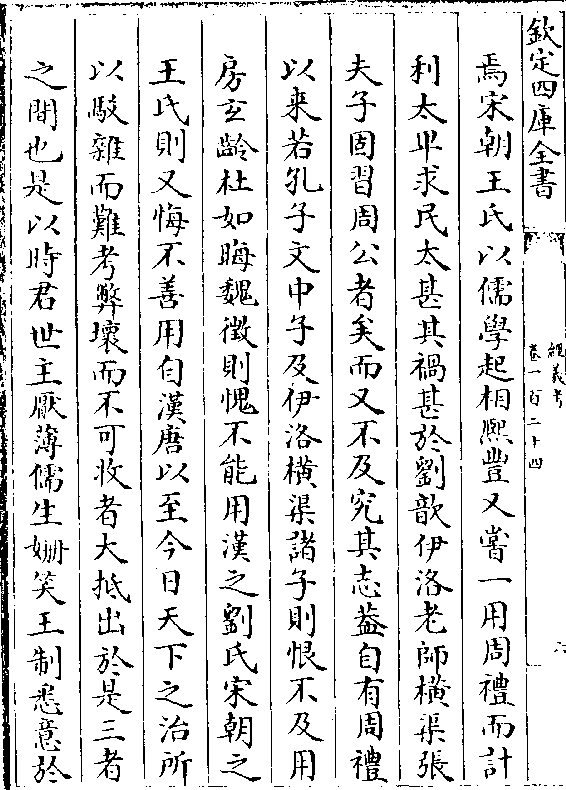 欽定四庫全書
經義考
卷一百二十四
六
焉宋朝王氏以儒學起相熙豐又嘗一用周禮而計
利太卑求民太甚其禍甚於劉歆伊洛老師橫渠張
夫子固習周公者矣而又不及究其志葢自有周禮
以來若孔子文中子及伊洛橫渠諸子則恨不及用
房玄齡杜如晦魏徵則愧不能用漢之劉氏宋朝之
王氏則又悔不善用自漢唐以至今日天下之治所
以駁雜而難考弊壞而不可收者大抵出於是三者
之間也是以時君世主厭薄儒生姍笑王制悉意於